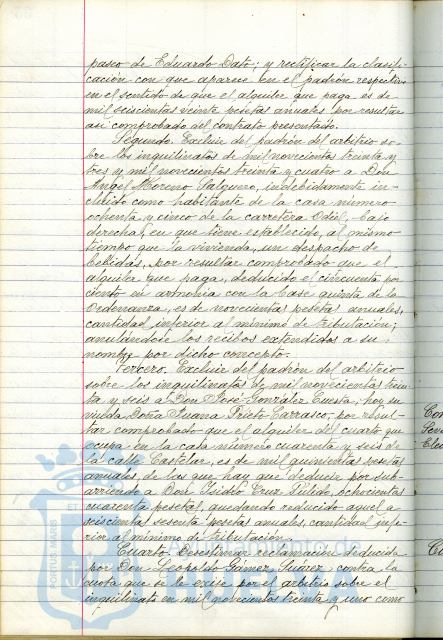 paseo de Eduardo Dato; y rectificar la clasifi-
cación con que aparece en el padrón respectivo
en el sentido de que el alquiler que paga es de
mil seiscientas veinte pesetas anuales por resultar
así comprobado del contrato presentado.
Segundo. Excluir del padrón del arbitrio so-
bre los inquilinatos de mil novecientos treinta y
tres y mil novecientos treinta y cuatro a Don
Angel Moreno Salguero, indebidamente in-
cluido como habitante de la casa número
ochenta y cinco de la carretera Odiel, bajo
derecha, en que tiene establecido, al mismo
tiempo que la vivienda, un despacho de
bebidas, por resultar comprobado que el
alquiler que paga, deducido el cincuenta por
ciento en armonia con la base quinta de la
Ordenanza, es de novecientas pesetas anuales,
cantidad inferior al mínimo de tributación;
anulándose los recibos extendidos a su
nombre por dicho concepto.
Tercero. Excluir del padrón del arbitrio
sobre los inquilinatos de mil novecientos trein-
ta y seis a Don José González Cuesta, hoy su
viuda Doña Juana Prieto Carrasco, por resul-
tar comprobado que el alquiler del cuarto que
ocupa en la casa número cuarenta y seis de
la calle Castelar, es de mil quinientas pesetas
anuales de las que hay que deducir por sub-
arriendo a Don Isidro Cruz Pulido, ochocientas
cuarenta pesetas, quedando reducido aquel a
seiscientas sesenta pesetas anuales, cantidad infe-
rior al mínimo de tributación.
Cuarto. Desestimar reclamación deducida
por Don Leopoldo Gámez Suárez, contra la
cuota que se le exije por el arbitrio sobre el
inquilinato en mil novecientos treinta y uno como
PORTUS MARIS